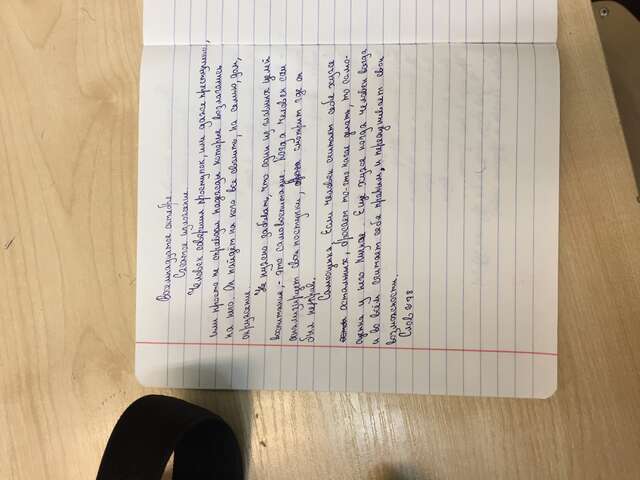 Восемнадцатое октября
Сжатое изложение.
Человек совершил проступок, или даже преступление,
или просто не оправдал надежды которые возлагались
на него. Он найдёт на кого все свалить, на семью, дом,
окружение.
Не нужно забывать, что один из главных целей
воспитание, - это самовоспитание. Когда человек сам
анализирует свои поступки, смотрит где он
был неправ.
Самооценка, Если человек считает себя хуже
остальных, бросает то-что начал делать, то само-
оценка у него низкая. Еще хуже когда человек всегда
и во всём считает себя правым, и переоценивает свои
возможности.
Слов 78